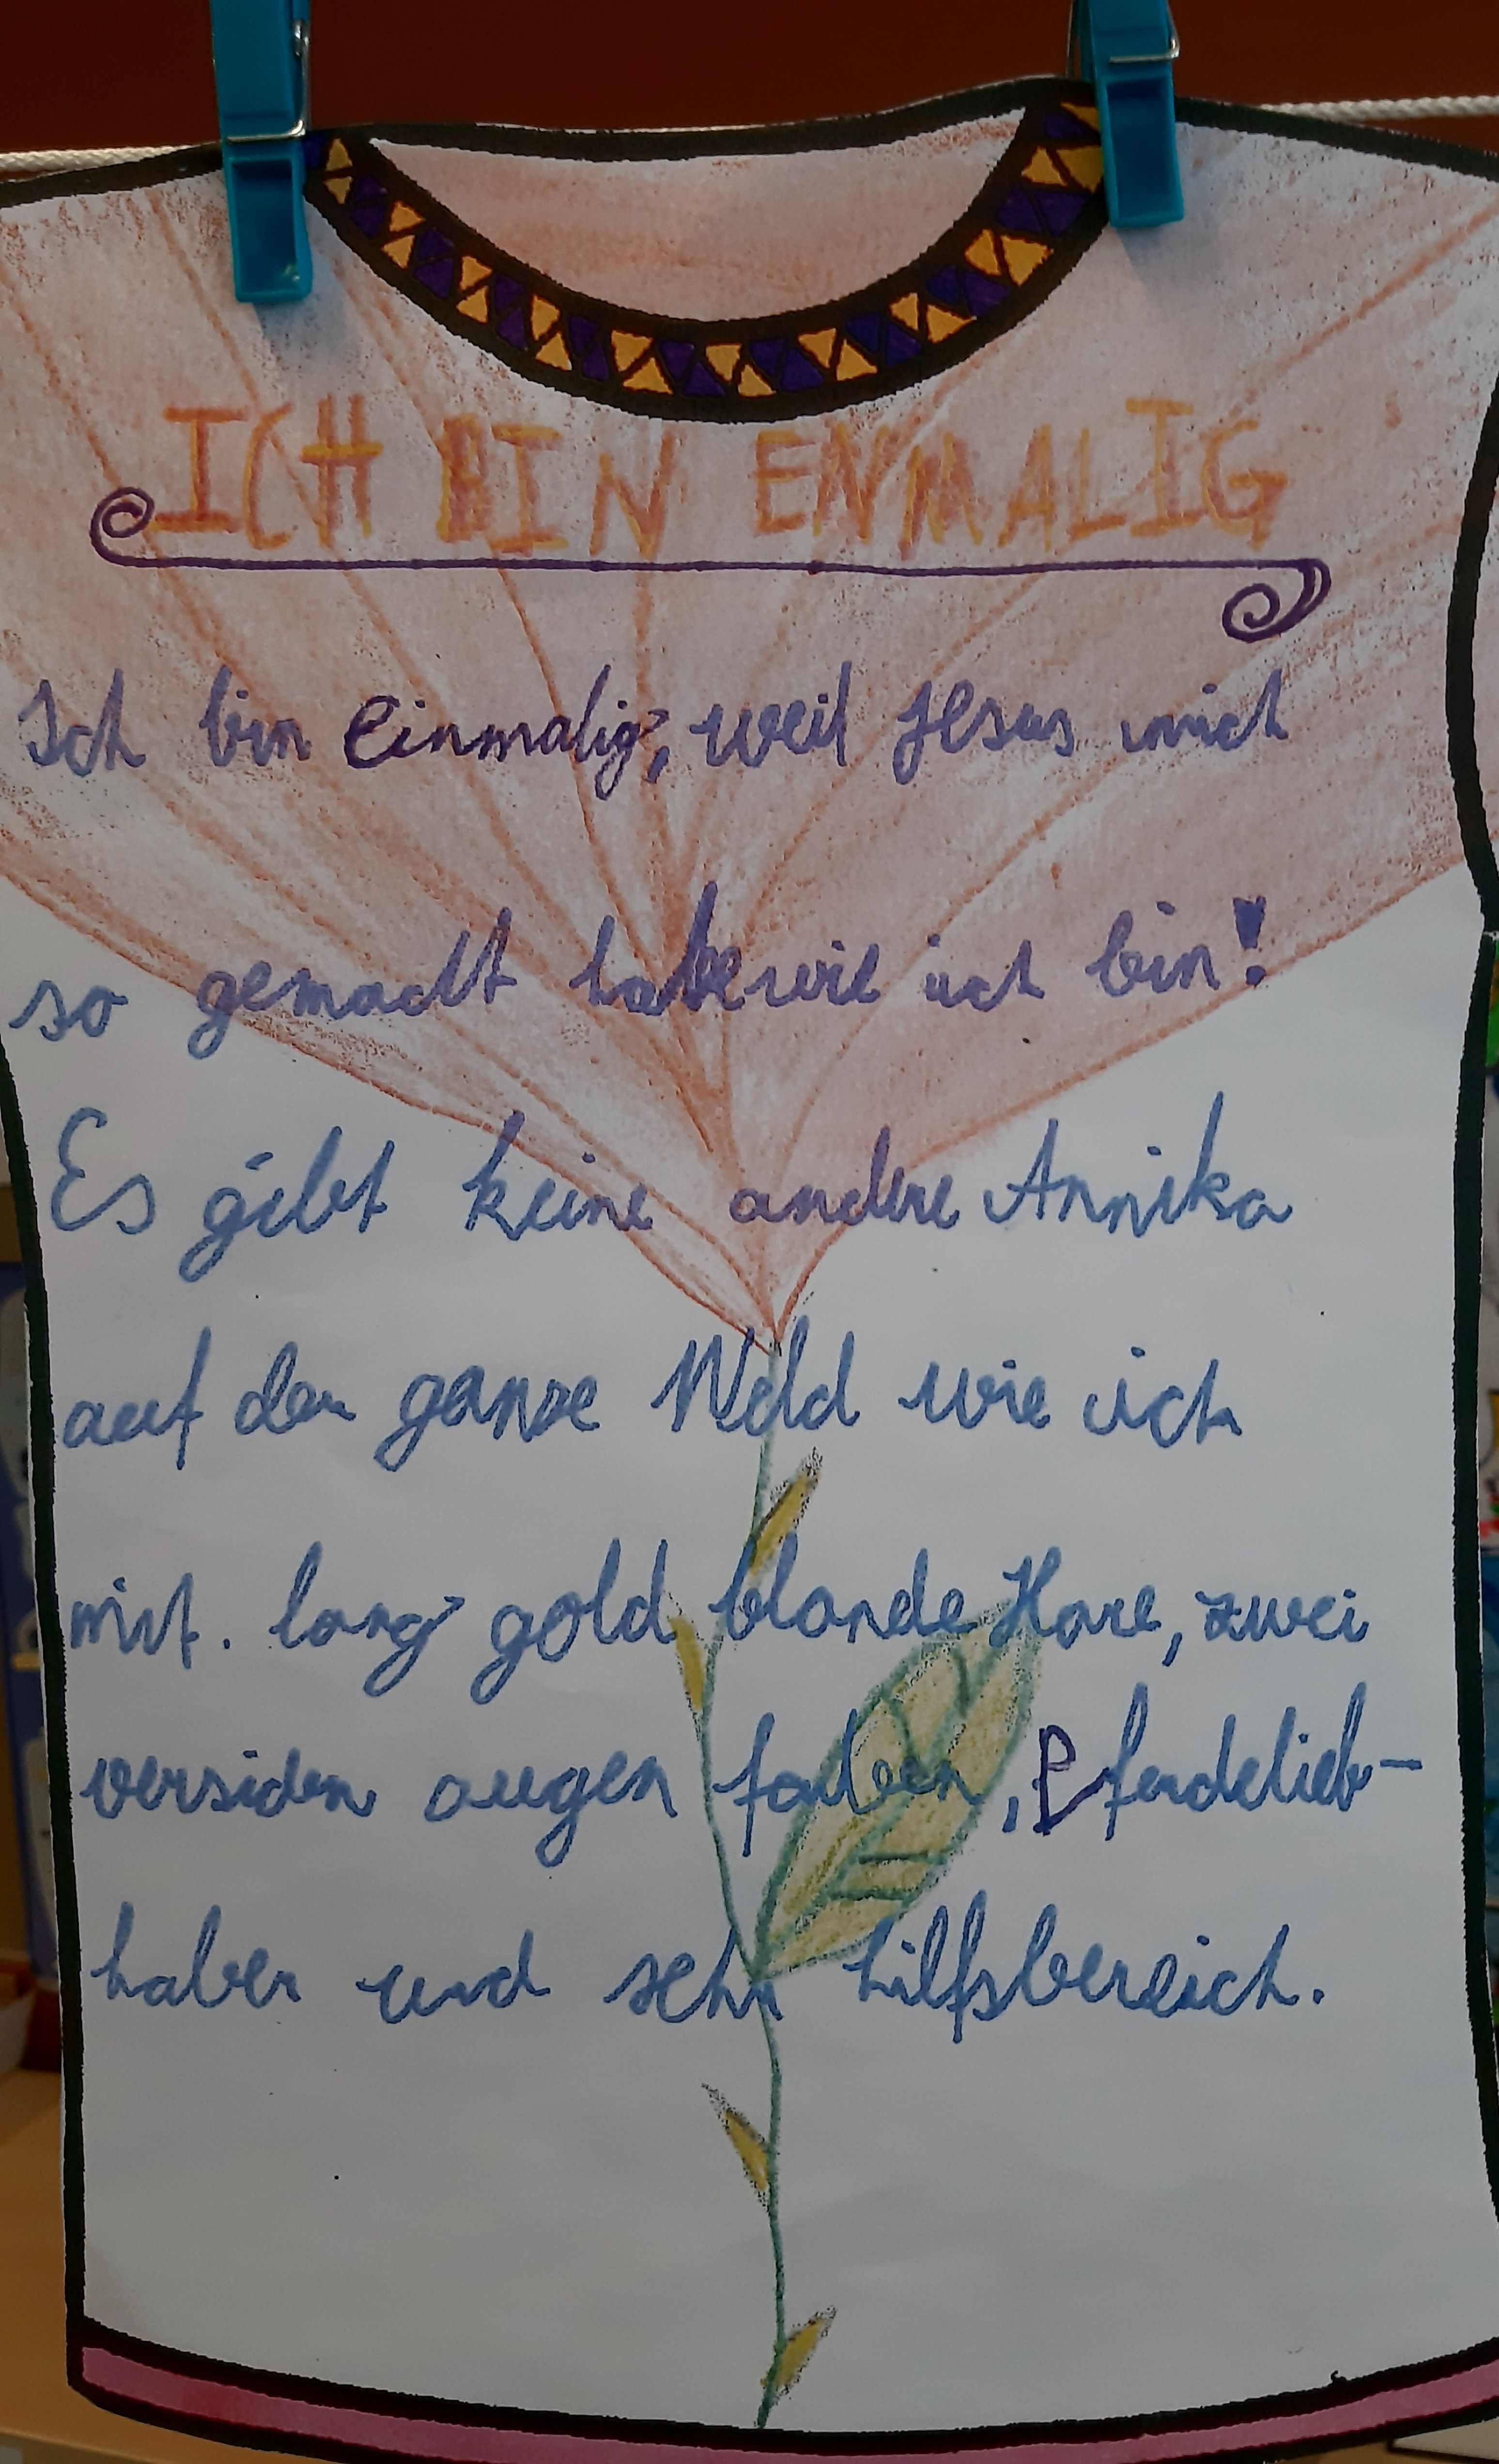 ICH BIN ENMALIG
Ich bin einmalig, weil Jesus mich
so gemacht habe wie ich bin!
Es gibt keine andere Annika
auf der ganze Weld wie ich
mit. lang gold blonde Hare, zwei
versiden augen farben, Pferdelieb-
haber und sehr hilfsbereich.